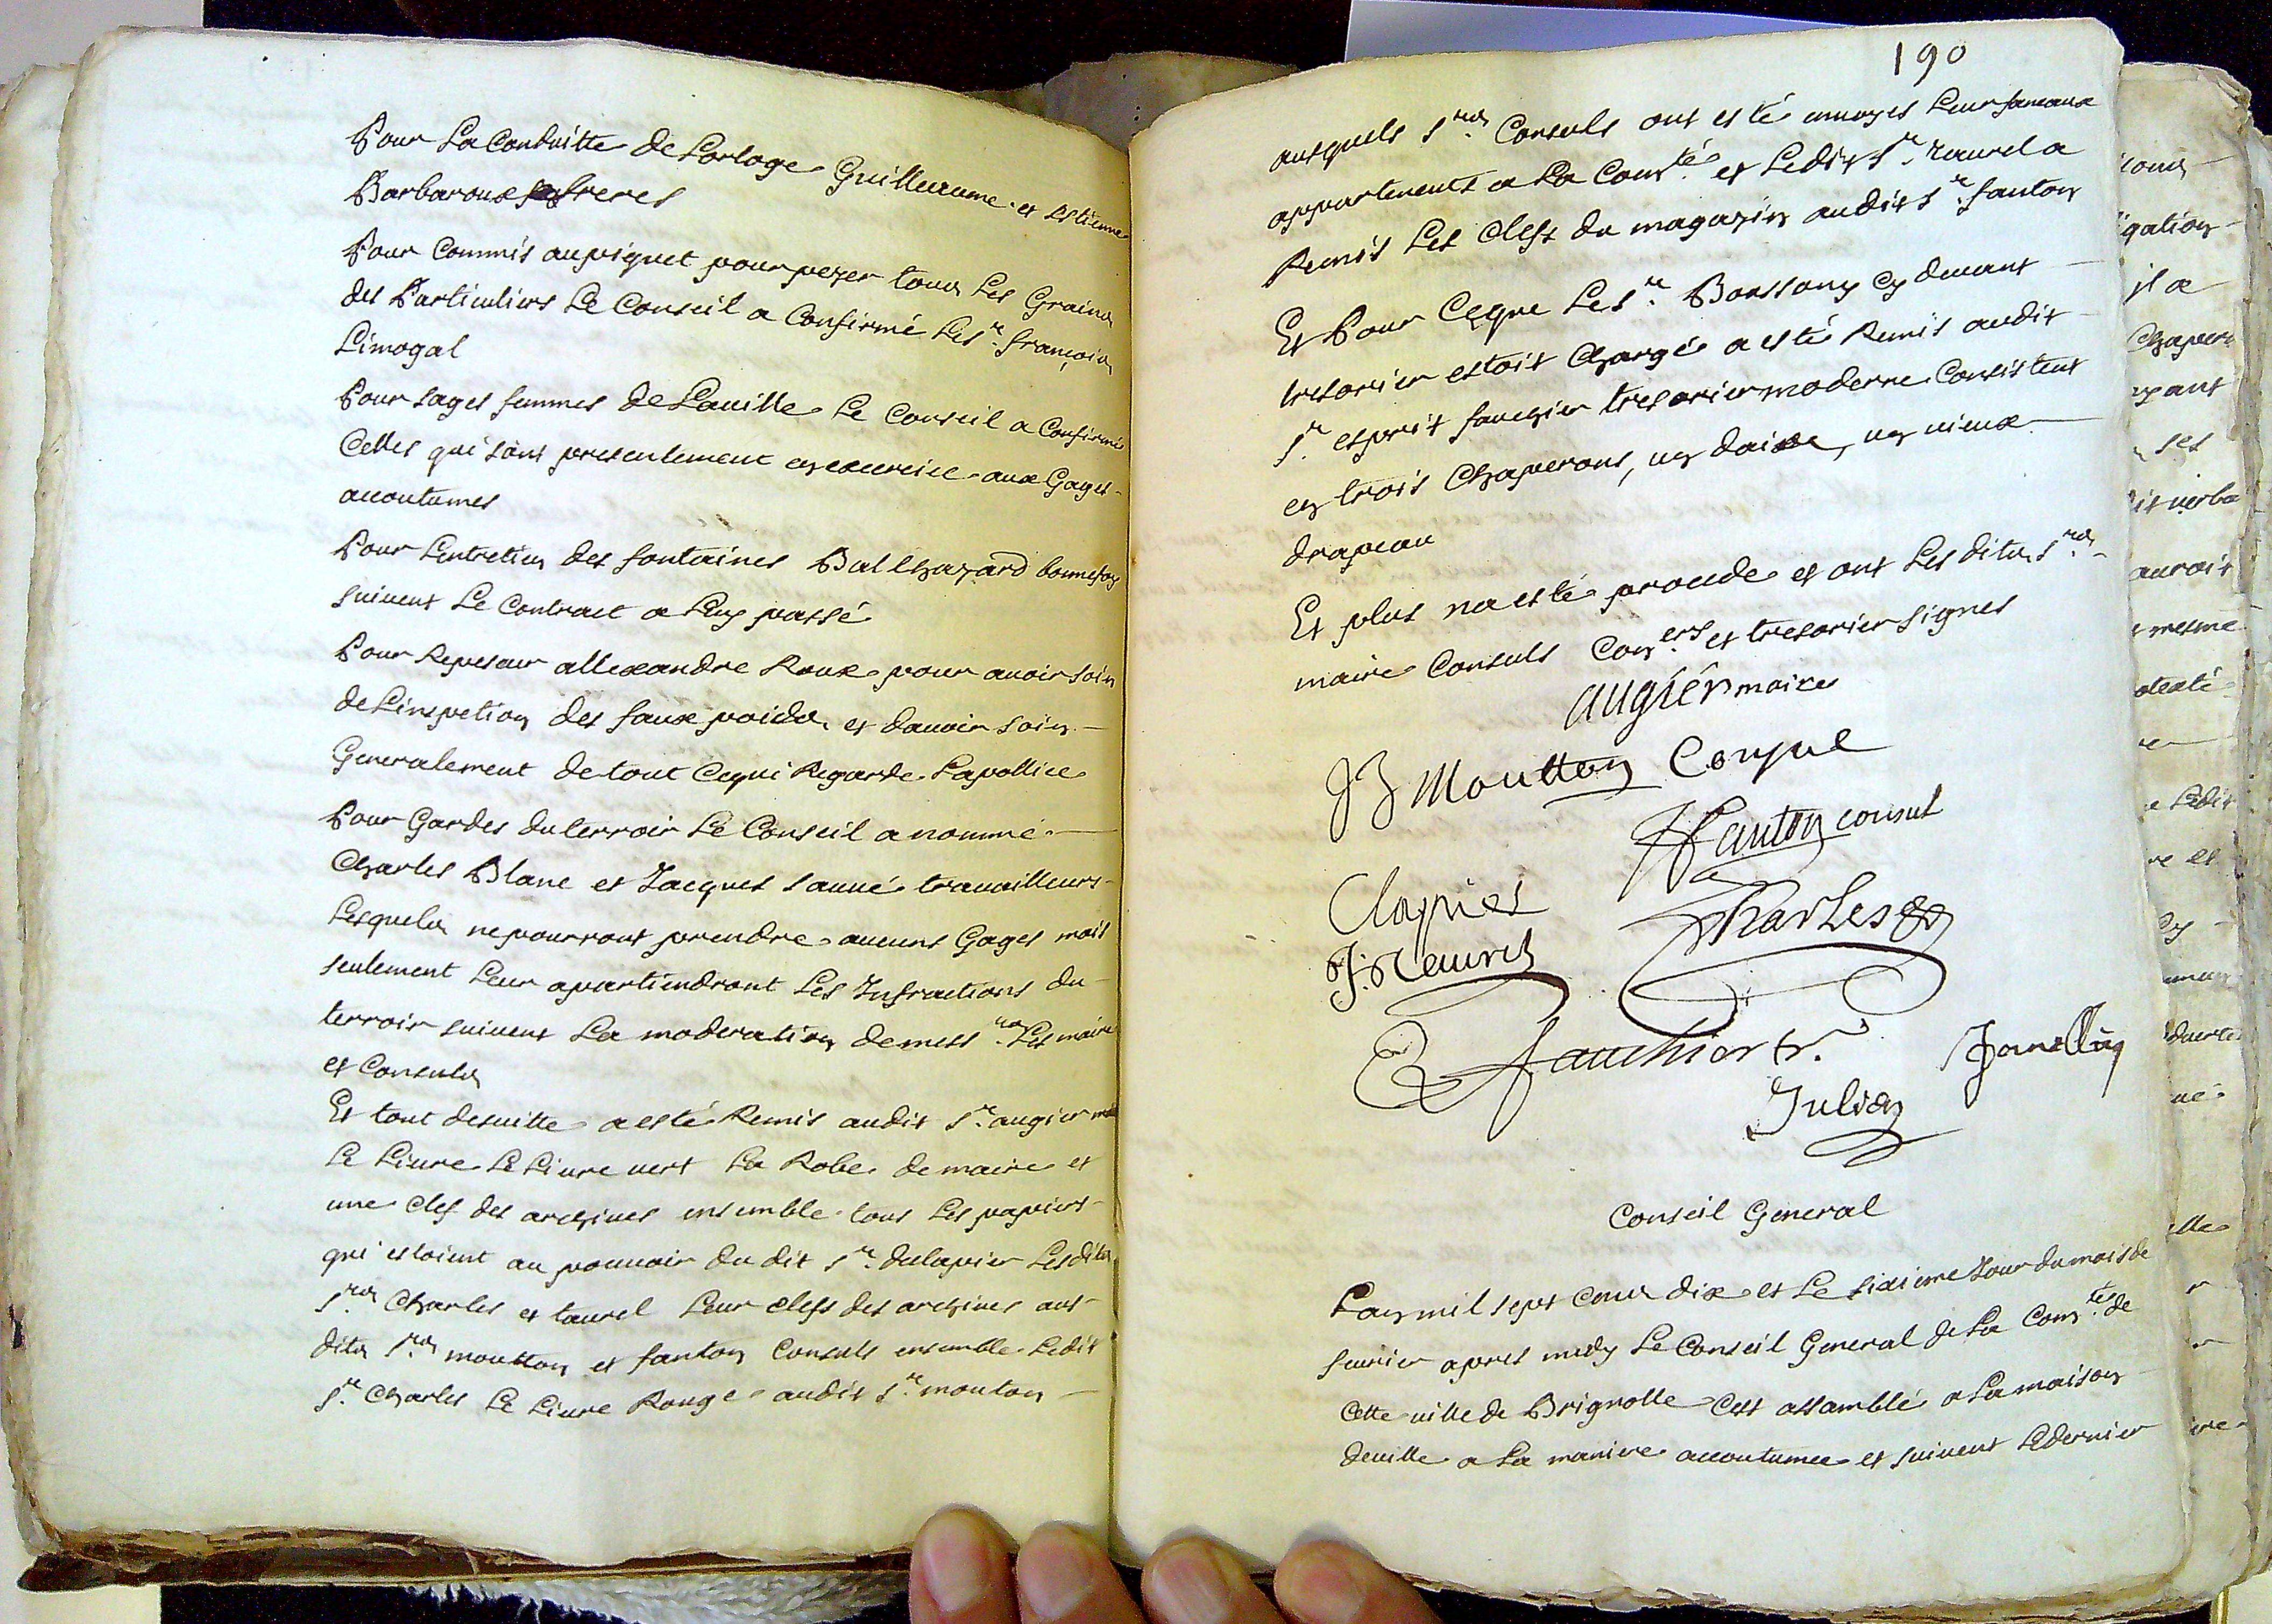 Pour La Conduitte de Lorloge Guilleaume et estienne
Barbaroux freres
Pour Commis au piquet pour pezer tous Les Grains
des Particuliers Le Conseil a Confirmé Le Sr. françois
Limogal
Pour sages femmes de La uille Le Conseil a Confirmé
Celles qui sont presentement en exercice aux Gages
acoutumes
Pour Lentretien des fontaines Balthazard bonnefoy
suivent Le Contract a Luy passé
Pour Repeseur allexandre Roux pour auoir soin
de Linspetion des faux poids et dauoir soin
Generalement de tout Cequi Regarde La pollice
Pour Gardes du terroir Le Conseil a nommé
Charles Blanc et Jacques sauué trauailleurs
Lesquels ne pourront prendre aucuns Gages mais
seulement Leur apartiendront Les Infractions du
terroir suivent La moderation de messrs. Les maire
et Consuls
Et tout desuitte a esté Remis audit Sr. augier
Le Liure Le Liure uert La Robe de maire et
une clef des archiues ensemble tous Les papiers
qui estoient au pouuoir du dit Sr. dulapier Lesdits
Srs. Charles et taurel Leur clefs des archiues aus
dits Srs. moutton et fanton Consuls ensemble Ledit
Sr. Charles Le Liure Rouge audit Sr. mouton
190
ausquels Srs. Consuls ont esté Leur
appartenents a La Comté. et Ledit Sr. taurel a
Remis Les Clefs du magazin audit Sr. fanton
Et Pour Ceque Le Sr. Boussony Cy deuant
tresorier estoit Chargé a esté Remis audit
Sr. esprit fauchier tresorier moderne Consistent
en trois Chaperons, un daixe, un uieux
drapeau
Et plus na esté procedé et ont Les dits Srs.
maire Consuls Coners. et tresorier signes
augier maire
JB Moutton Consul
fanton consul
Clapier
Charles
J. Taurel
E fauchier tr.
Janellin
Julien
Conseil General
Lan mil sept Cens dix et Le sixieme Jour du mois de
feurier apres midy Le Conseil General de La Comté. de
Cette uille de Brignolle Cest assamblé a La maison
deuille a La maniere accoutumee et suivent Ledernier